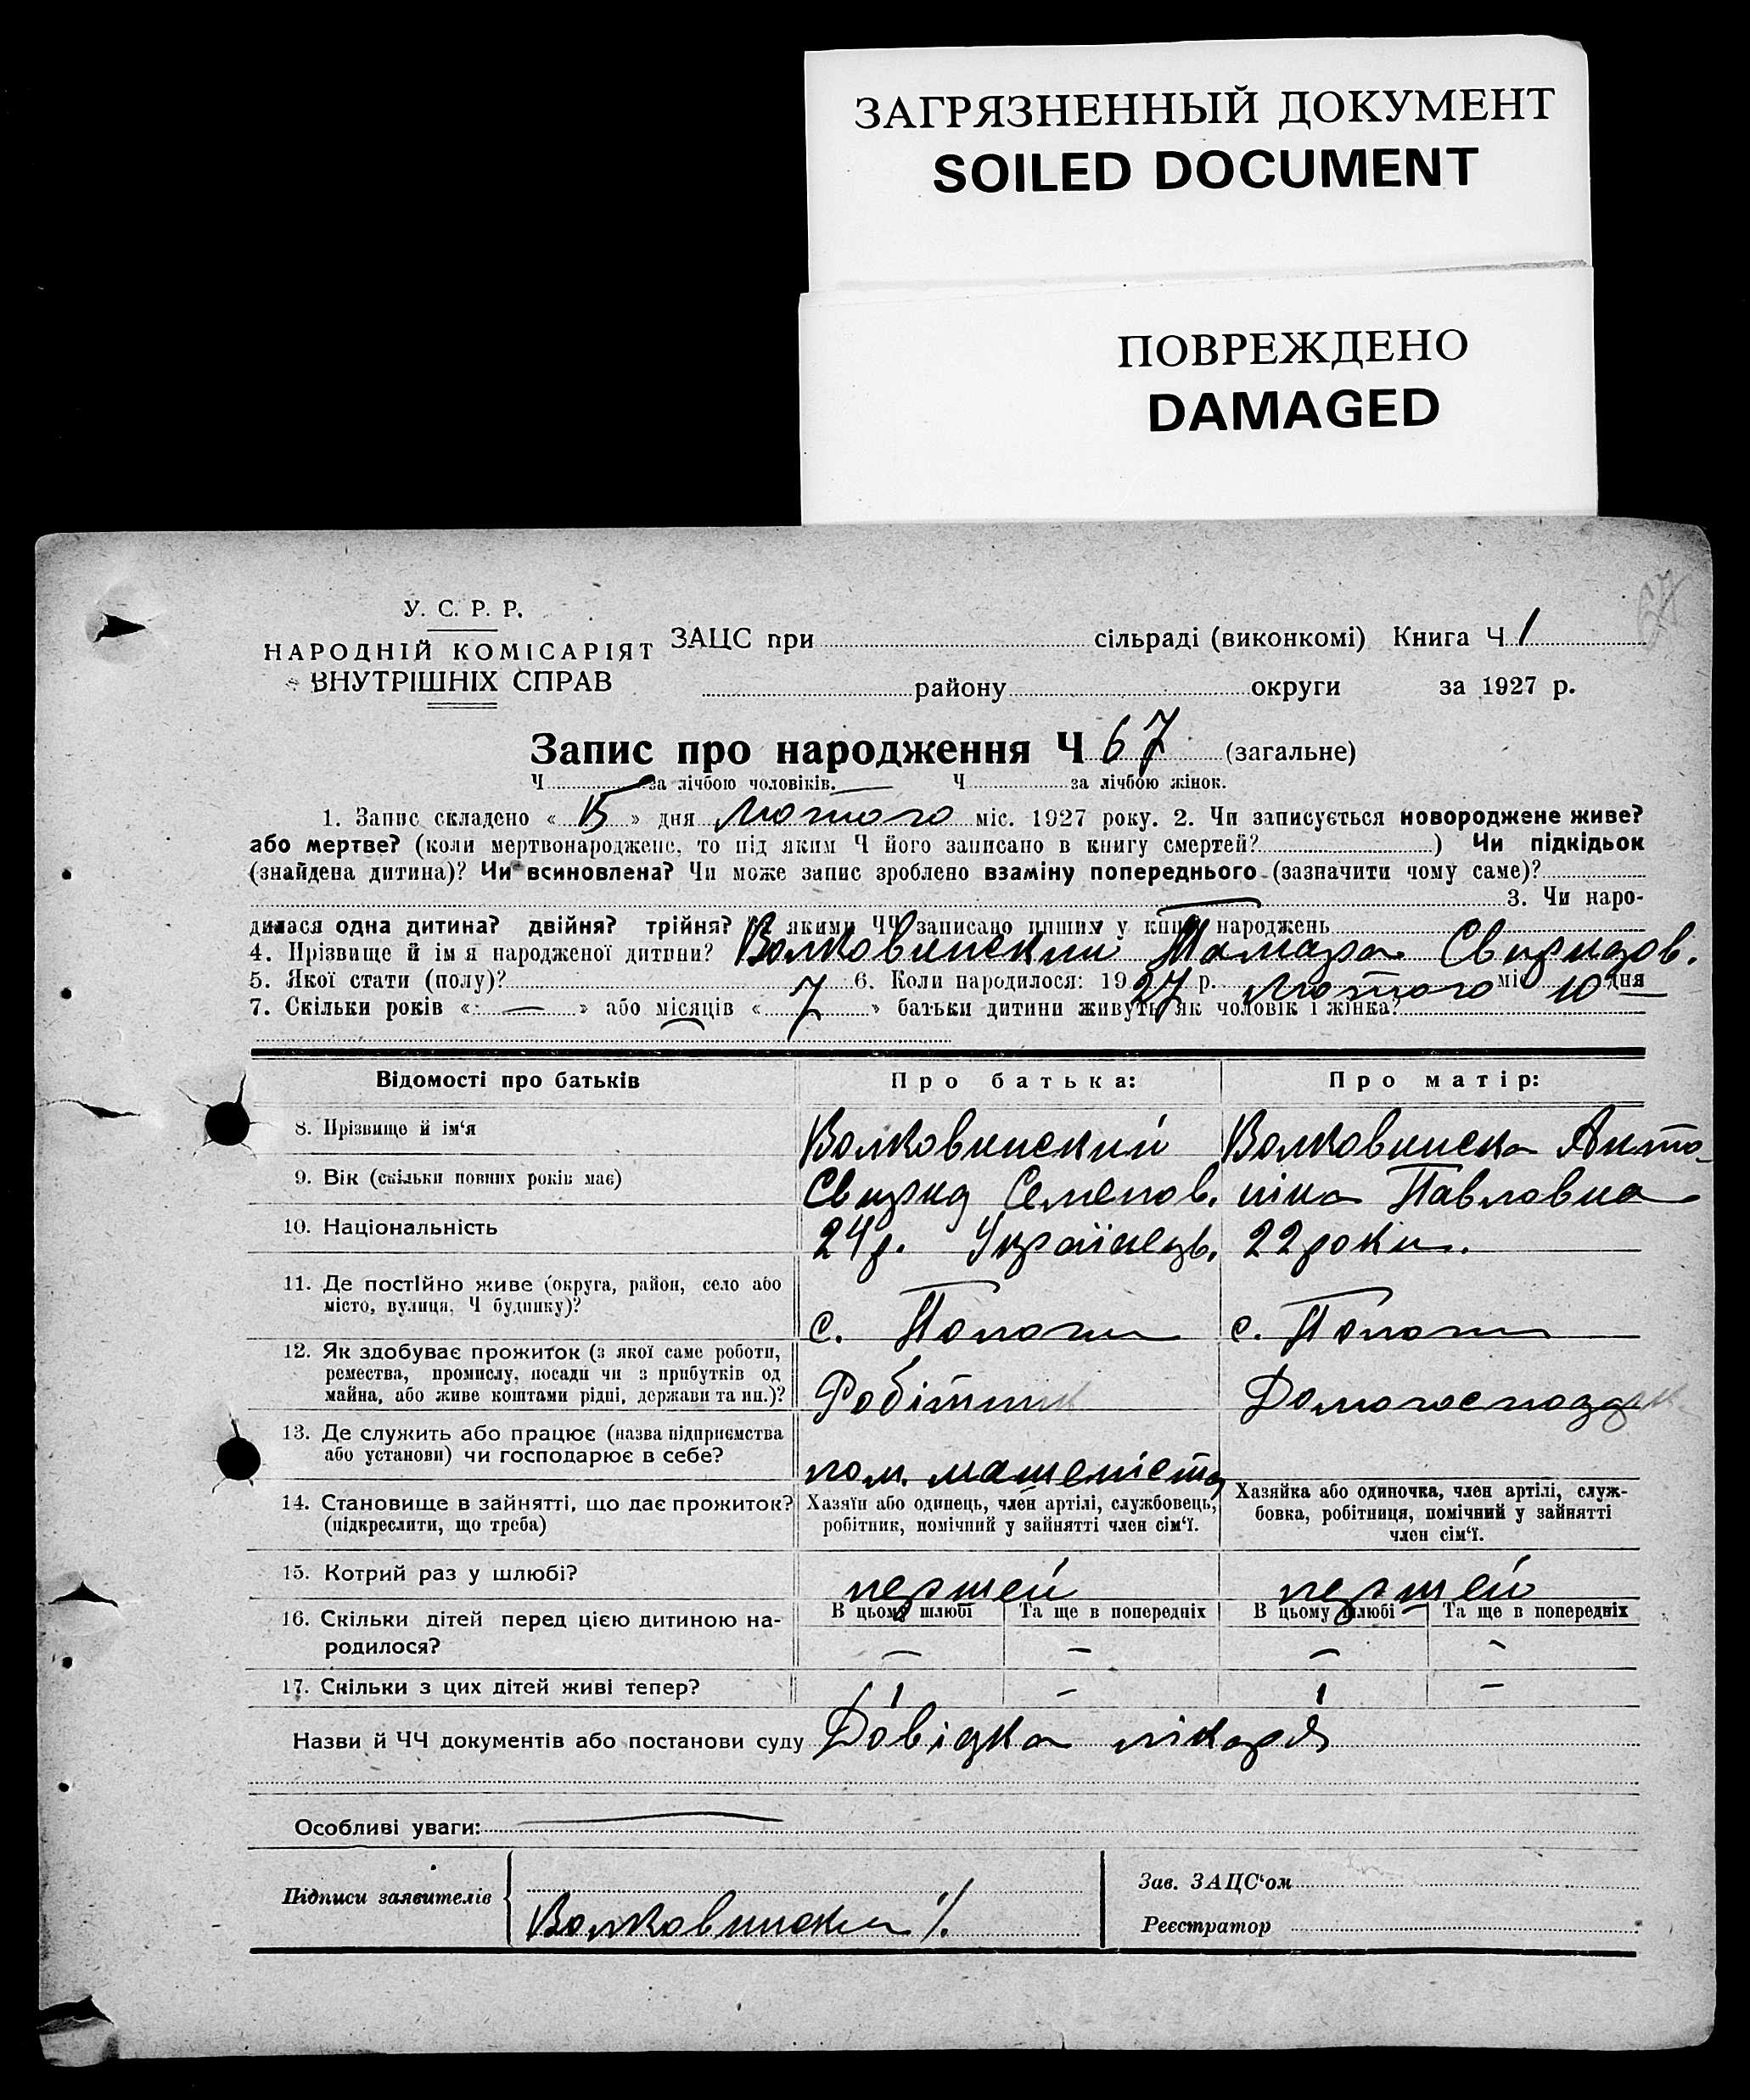 ЗАГРЯЗНЕННЫЙ ДОКУМЕНТ
SOILED DOCUMENT
ПОВРЕЖДЕНО
DAMAGED
67
У. С. Р. Р.
НАРОДНІЙ КОМІСАРІЯТ
ВНУТРІШНІХ СПРАВ
ЗАЦС при сільраді (виконкомі) Книга Ч 1
району округи за 1927 р.
Запис про народження Ч 67 (загальне)
Ч за лічбою чоловіків. — Ч за лічбою жінок.
1. Запис складено « 15 » дня Лютого міс. 1927 року. 2. Чи записується новороджене живе?
або мертве? (коли мертвонароджене, то під яким Ч його записано в книгу смертей? ) Чи підкідьок
(знайдена дитина)? Чи всиновлена? Чи може запис зроблено взаміну попереднього (зазначити чому саме)?
3. Чи наро-
дилася одна дитина? двійня? трійня? якими ЧЧ записано інших у книзі народжень
4. Прізвище й ім я народженої дитини? Волковинский Тамара Свиридов.
5. Якої стати (полу)? 6. Коли народилося: 1927 р. Лютого міс 10 дня
7. Скільки років « — » або місяців « 7 » батьки дитини живуть як чоловік і жінка?
Відомості про батьків Про батька: Про матір:
8. Прізвище й ім‘я Волковинский Волковинска Анто-
9. Вік (скільки повних років має) Свирид Семенов. ніна Павловна
10. Національність 24 р. Українець. 22 роки.
11. Де постІйно живе (округа, район, село або
місто, вулиця, Ч будинку)? с. Пологи с. Пологи
12. Як здобуває прожиток (з якої саме роботи,
ремества, промислу, посади чи з прибутків од
майна, або живе коштами рідні, держави та ин.)? Робітник
13. Де служить або працює (назва підприємства
або установи) чи господарює в себе? пом. машеніста
14. Становище в зайнятті, що дає прожиток?
(підкреслити, що треба)
Хазяїн або одинець, член артілі, службовець,
робітник, помічний у зайнятті член сім‘ї.
Хазяйка або одиночка, член артілі, служ-
бовка, робітниця, помічний у зайнятті
член сім‘ї.
15. Котрий раз у шлюбі? першей першей
16. Скільки дітей перед цією дитиною на-
родилося?
В цьому шлюбі Та ще в попередніх В цьому шлюбі Та ще в попередніх
— — — —
17. Скільки з цих дітей живі тепер? 1 — 1 —
Назви й ЧЧ документів або постанови суду Довідка лікаря
Особливі уваги:
Підписи заявителів
Волковински
Зав. ЗАЦС‘ом
Реєстратор